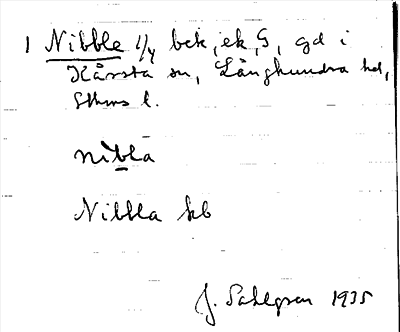 1 Nibble 1/4 bek, ek, S, gd i
Kårsta sn, Långhundra hd,
Sthms l.
nibla
Nibbla kb
J. Sahlgren 1935